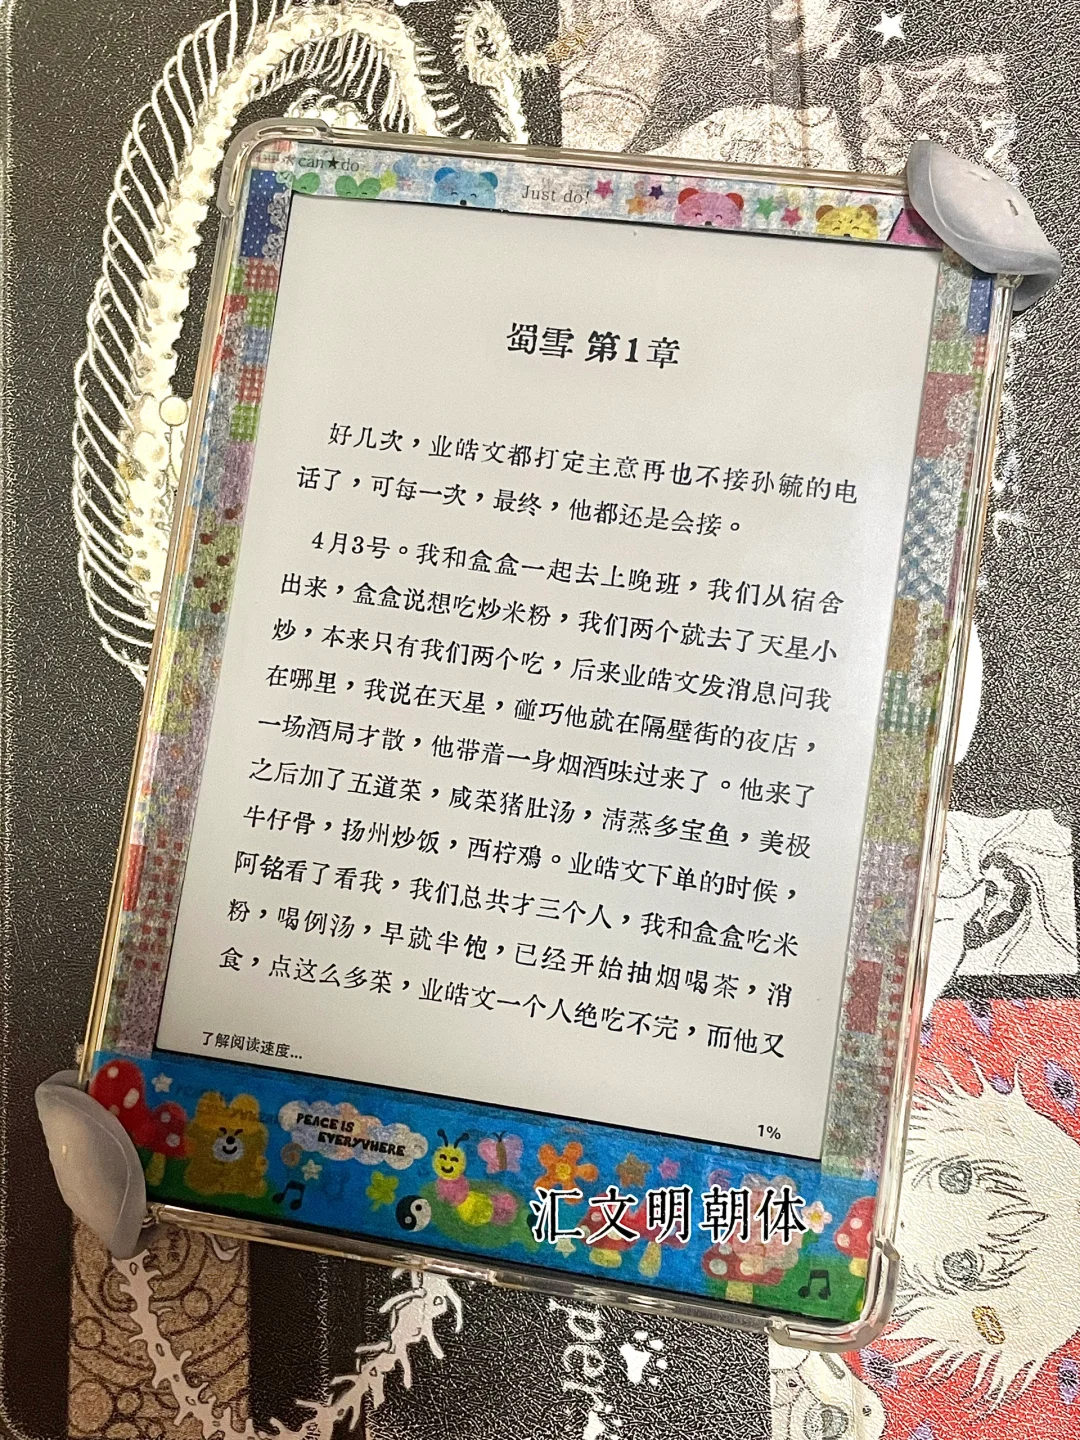 can★do
Just do!
蜀雪 第1章
好几次，业皓文都打定主意再也不接孙毓的电
话了，可每一次，最终，他都还是会接。
4月3号。我和盒盒一起去上晚班，我们从宿舍
出来，盒盒说想吃炒米粉，我们两个就去了天星小
炒，本来只有我们两个吃，后来业皓文发消息问我
在哪里，我说在天星，碰巧他就在隔壁街的夜店，
一场酒局才散，他带着一身烟酒味过来了。他来了
之后加了五道菜，咸菜猪肚汤，清蒸多宝鱼，美极
牛仔骨，扬州炒饭，西柠鸡。业皓文下单的时候，
阿铭看了看我，我们总共才三个人，我和盒盒吃米
粉，喝例汤，早就半饱，已经开始抽烟喝茶，消
食，点这么多菜，业皓文一个人绝吃不完，而他又
了解阅读速度...
1%
PEACE IS
EVERYWHERE
汇文明朝体
per